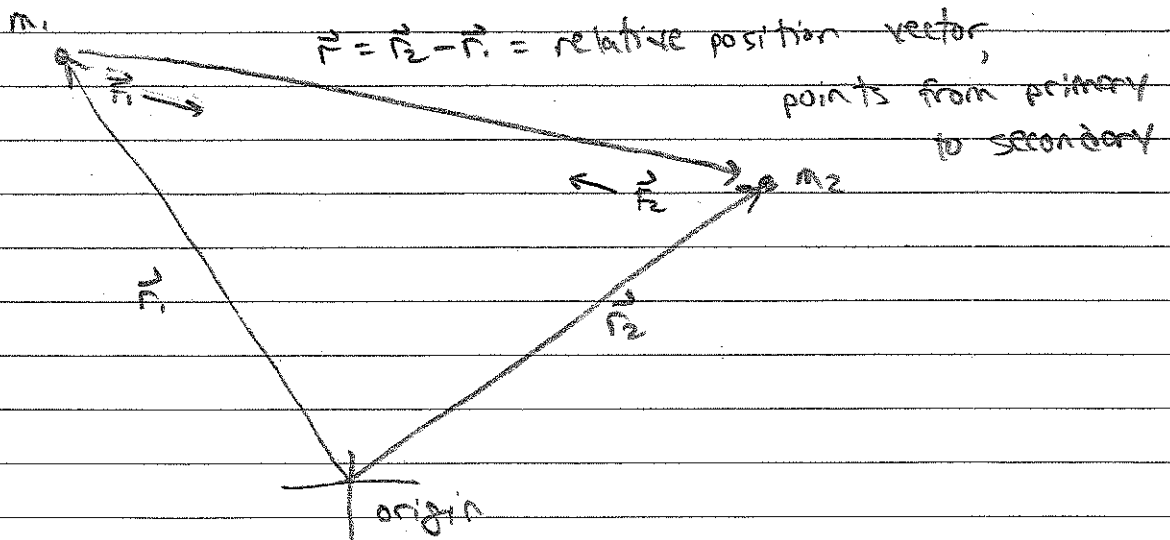 m₁
r⃗ = r⃗₂ - r⃗₁ = relative position vector,
points from primary
to secondary
m₂
r⃗₁
r⃗₂
origin